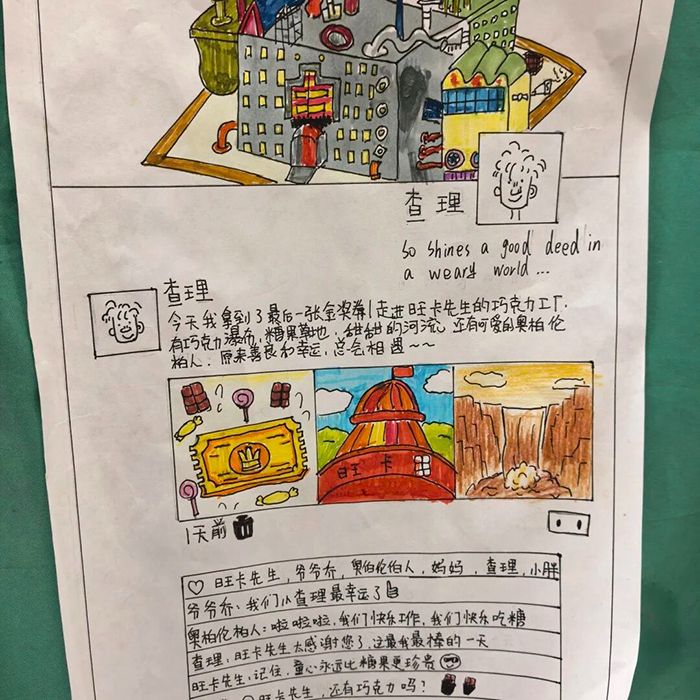 查理
So shines a good deed in
a weary world ...
查理
今天我拿到了最后一张金奖券!走进旺卡先生的巧克力工厂.
有巧克力瀑布,糖果草地,甜甜的河流.还有可爱的奥柏伦
柏人.原来善良和幸运,总会相遇~~
旺卡
1天前
旺卡先生,爷爷乔,奥伯伦伯人,妈妈,查理,小胖
爷爷乔:我们小查理最幸运了
奥柏伦柏人:啦啦啦,我们快乐工作,我们快乐吃糖
查理:旺卡先生太感谢您了,这最我最棒的一天
旺卡先生:记住,童心永远比糖果更珍贵
旺卡先生,还有巧克力吗?